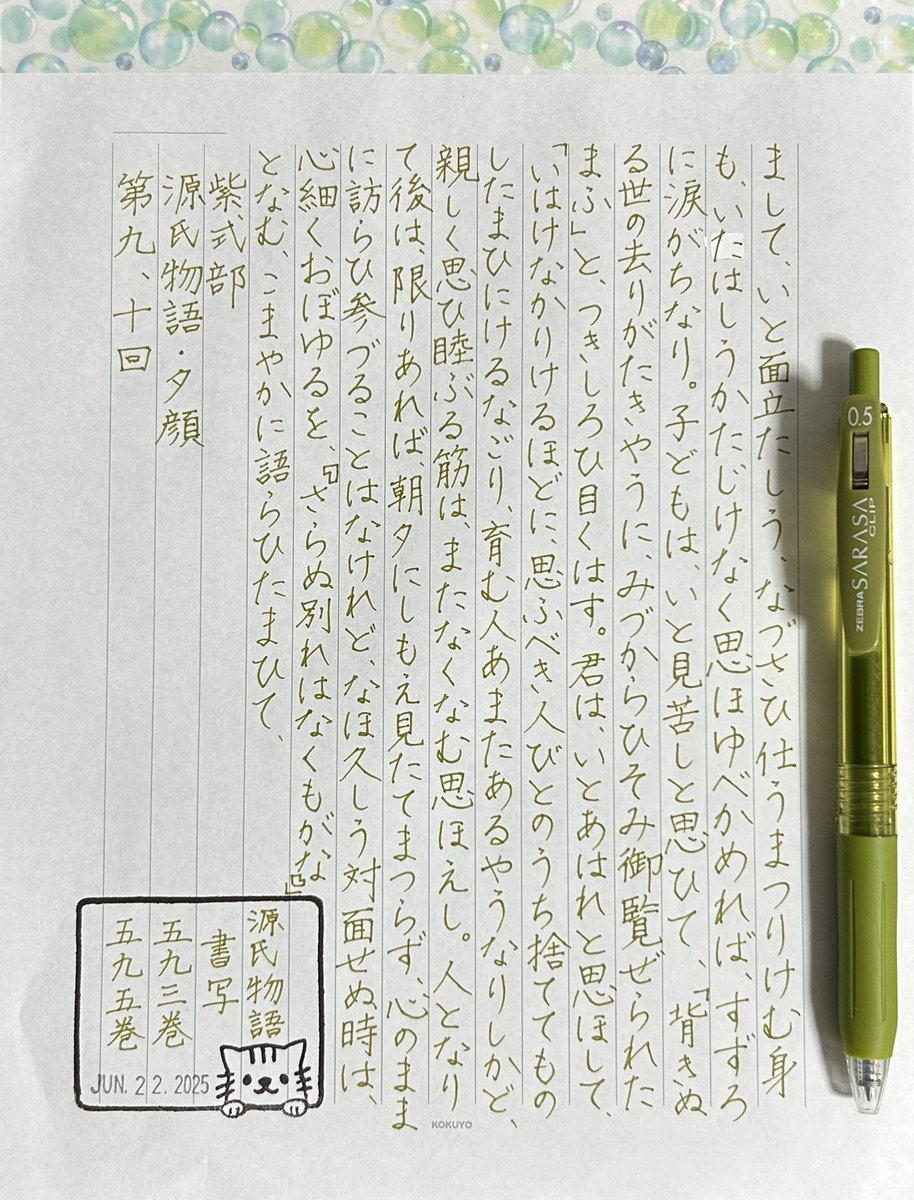 まして、いと面立たしう、なづさひ仕うまつりけむ身
も、いたはしうかたじけなく思ほゆべかめれば、すずろ
に涙がちなり。子どもは、いと見苦しと思ひて、「背きぬ
る世の去りがたきやうに、みづからひそみ御覧ぜられた
まふ」と、つきしろひ目くはす。君は、いとあはれと思ほして、
「いはけなかりけるほどに、思ふべき人びとのうち捨ててもの
したまひにけるなごり、育む人あまたあるやうなりしかど、
親しく思ひ睦ぶる筋は、またなくなむ思ほえし。人となり
て後は、限りあれば、朝夕にしもえ見たてまつらず、心のまま
に訪らひ参づることはなけれど、なほ久しう対面せぬ時は、
心細くおぼゆるを、『さらぬ別れはなくもがな』」
となむ、こまやかに語らひたまひて、
紫式部
源氏物語・夕顔
第九、十回
源氏物語
書写
五九三巻
五九五巻
JUN. 22. 2025
KOKUYO
0.5
ZEBRA SARASA CLIP